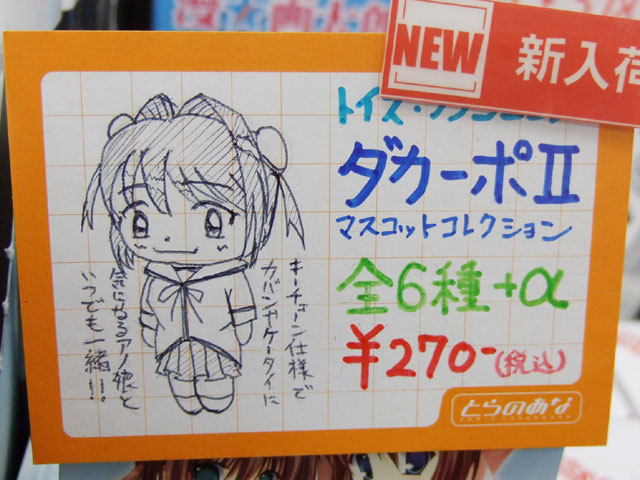 NEW
新入荷
ダカーポⅡ
マスコットコレクション
全6種+α
¥270-(税込)
キーチェーン仕様で
カバンやケータイに
気になるアノ娘と
いつでも一緒!!
とらのあな